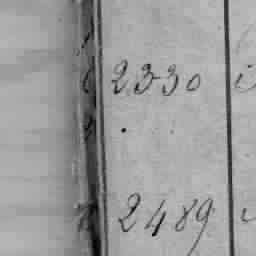 2330
2489